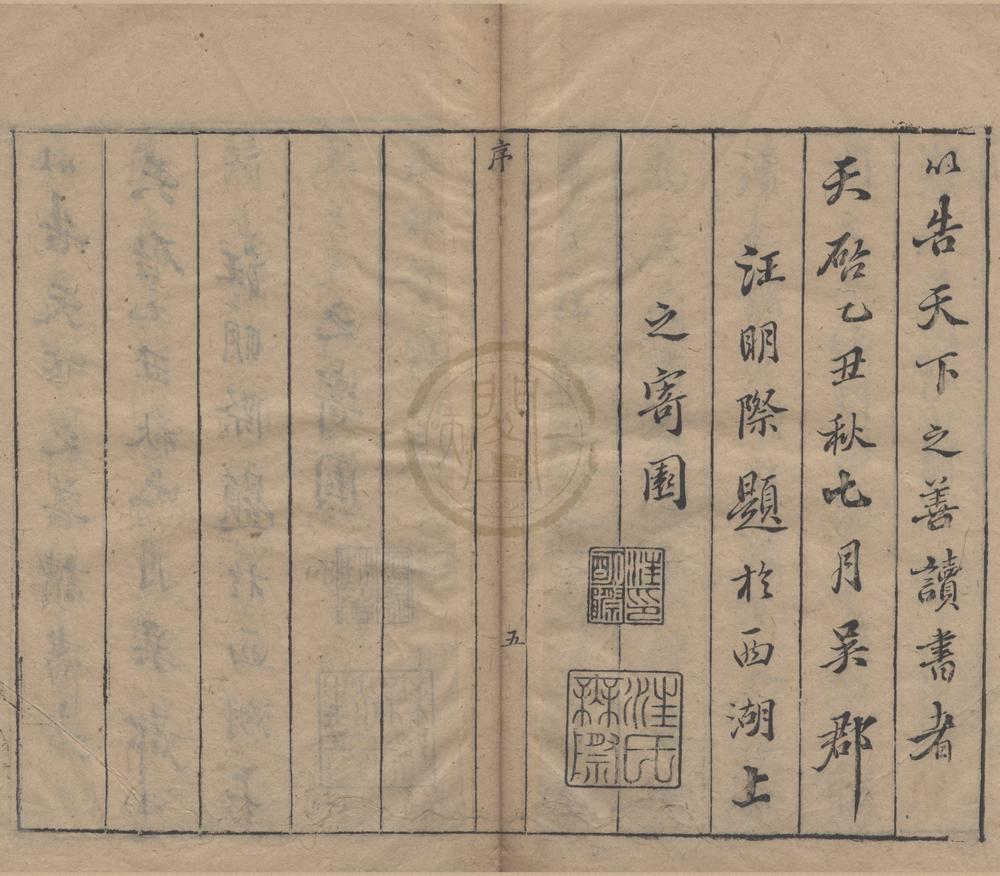 以告天下之善讀書者
天啓乙丑秋七月吳郡
汪明際題於西湖上
之寄園
汪印明際
汪氏無際
序
五